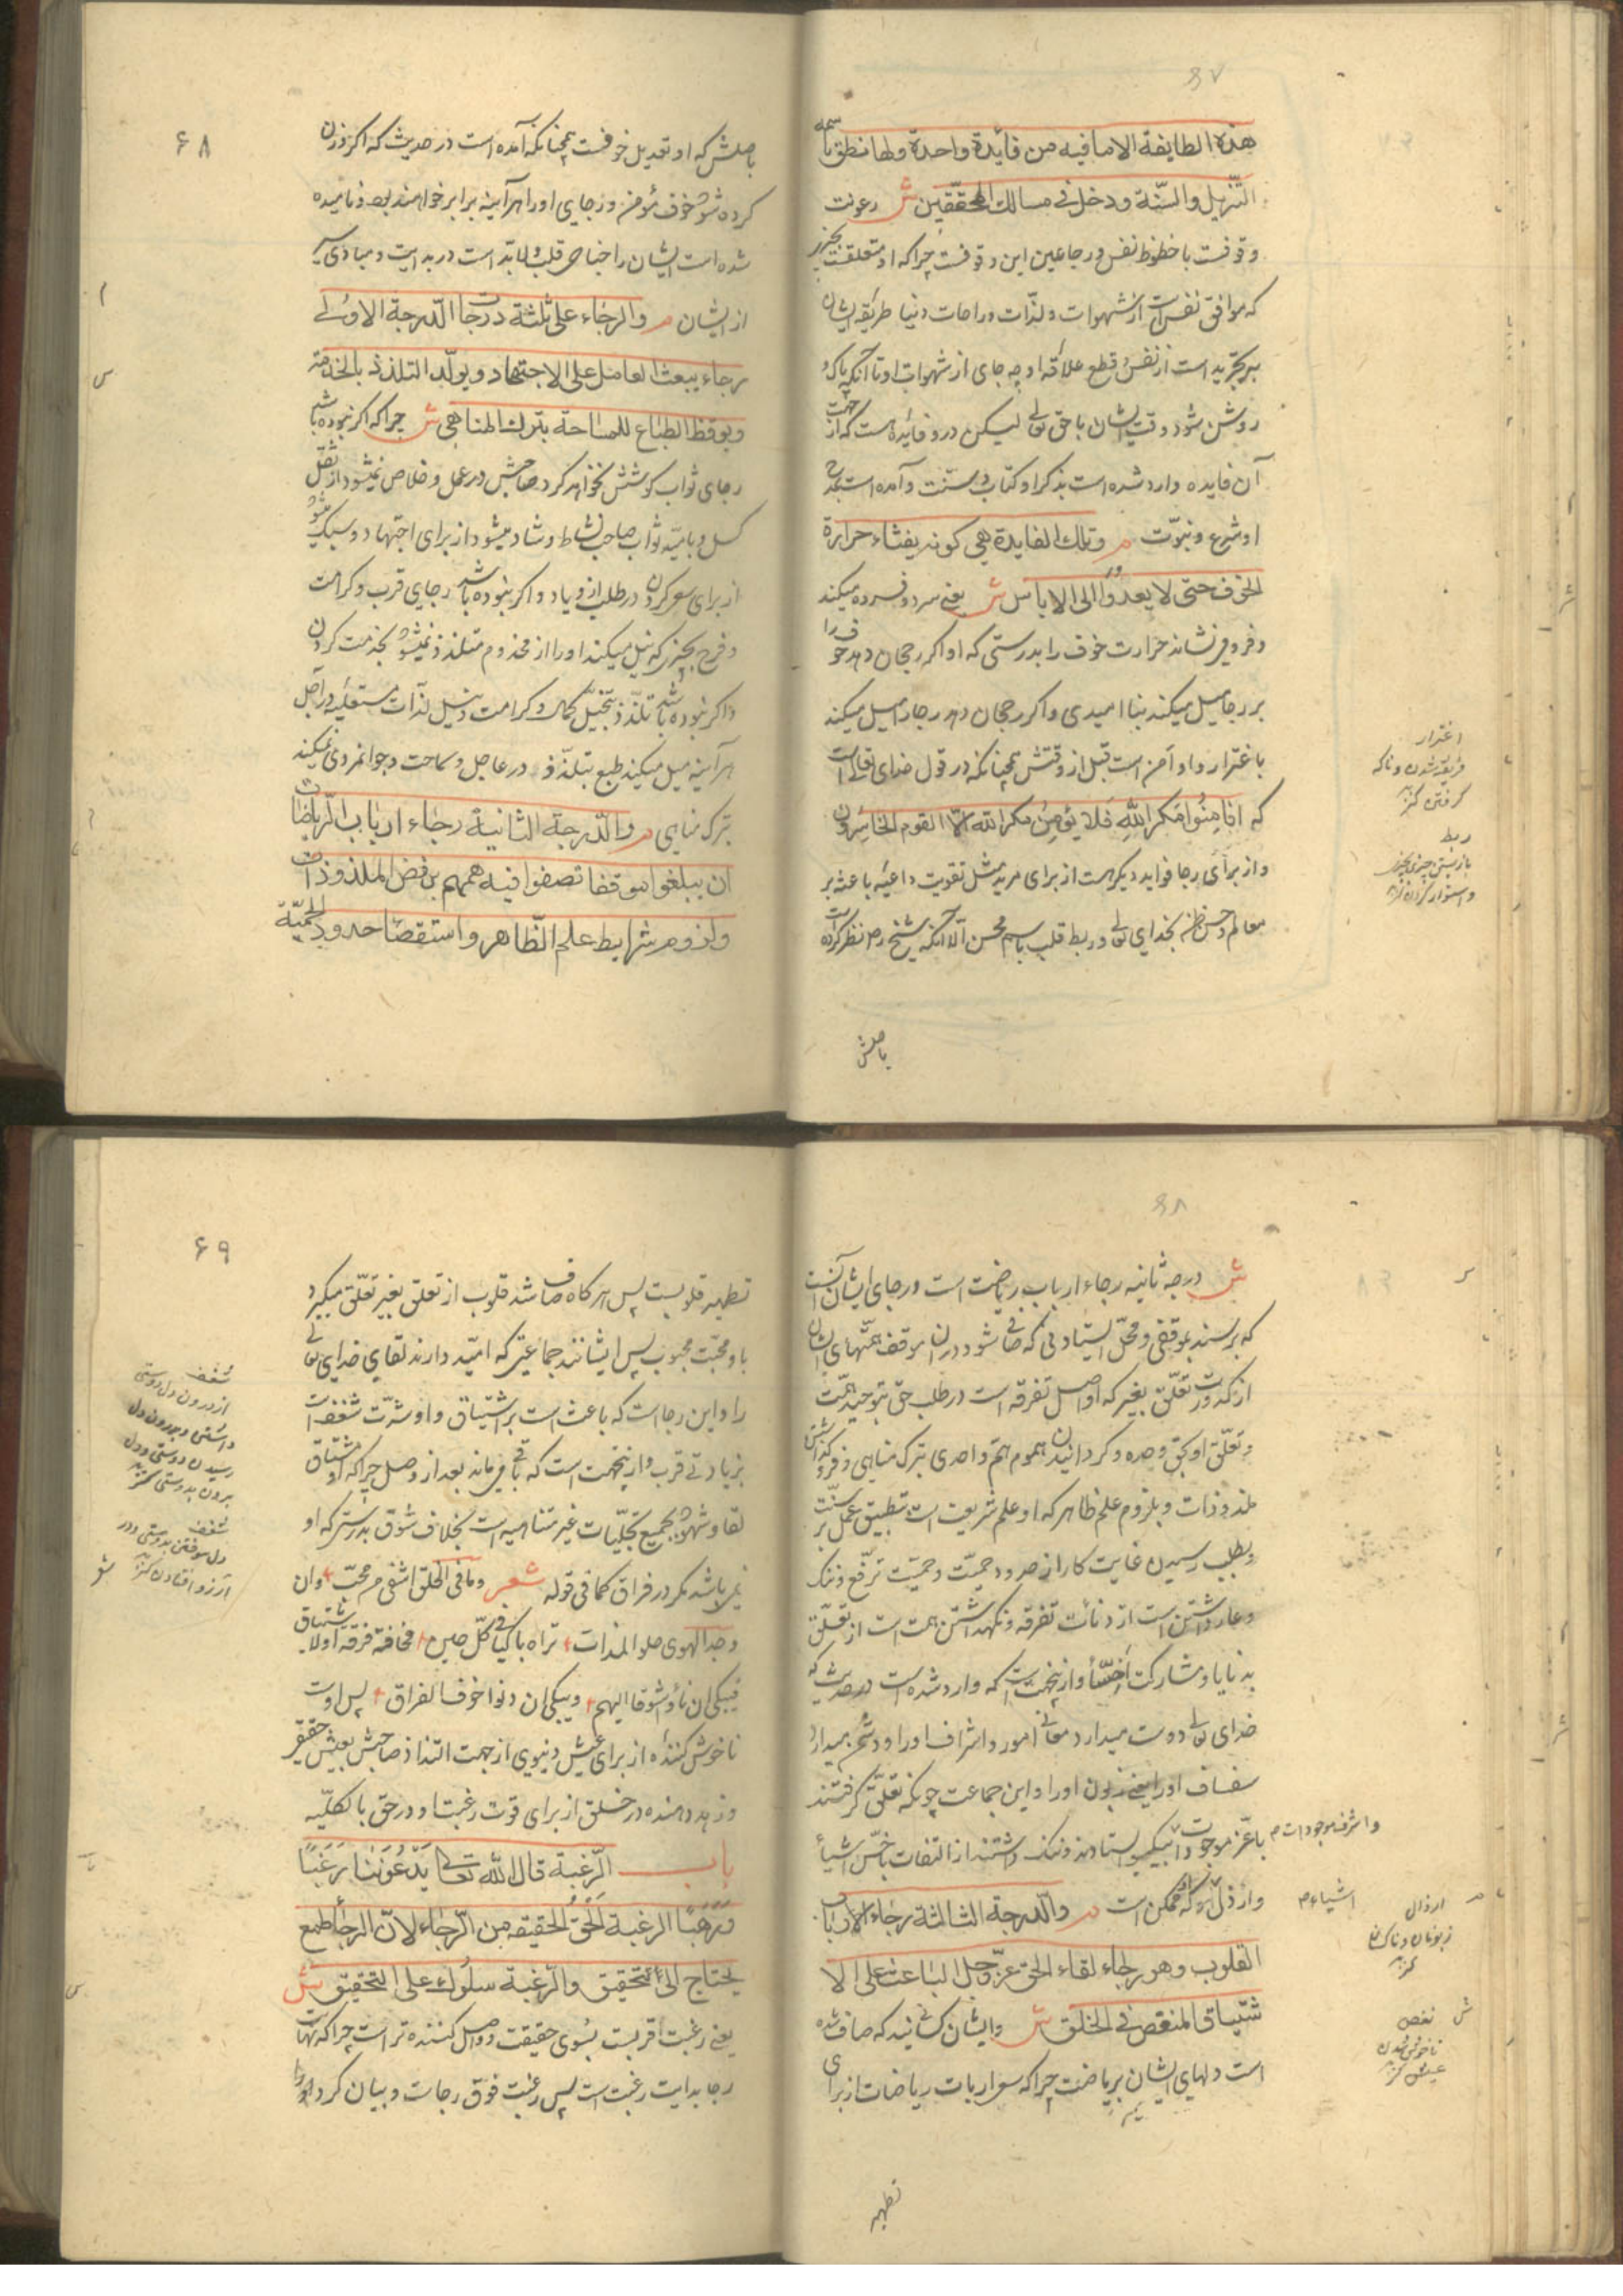 هذه الطایفة الا ما فیه من فائدة واحدة ولها نطق باسمه
التنزیل والسنّة ودخل فی مسالک المحقّقین ش رعونت
وقوفست با حظوظ نفس و رجا عین این وقوفست چرا که او متعلقست بچیزی
که موافق نفس است از شهوات و لذّات و راحات دنیا و طریقه ایشان
بر تجرید است از نفس و قطع علاقه او چه جای از شهوات او تا آنکه پاک و
روشن شود وقت ایشان با حق تعالی لیکن درو فائده است که از جهت
آن فایده وارد شده است بذکر او کتاب و سنّت و آمده است بمدح
او شرع و نبوّت م وتلک الفایدة هی کونه یفثاء حرارة
الخوف حتی لا یعدوا الی الایاس ش یعنی سرد و فسرده میکند
و فرو می‌نشاند حرارت خوف را بدرستی که او اگر رجحان دهد خوف را
بر رجا میل میکند بنا امیدی و اگر رجحان دهد رجا را میل میکند
باغترار و او امن است قبل از وقتش همچنانکه در قول خدای تعالی است
که افامنوا مکر الله فلا یؤمن مکر الله الّا القوم الخاسرون
و از برای رجا فواید دیگر هست از برای مرید مثل تقویت داعیه باعثه بر
معالم و حسن ظن بخدای تعالی و ربط قلب باسم محسن الّا آنکه شیخ رح نظر کرده است
باصلش
اغترار
فریفته شدن و ناکه
گرفتن کنز
ربط
باز بستن چیزی بچیزی
و استوار کردن کنز
۶۸
باصلش که او تعدیل خوفست همچنانکه آمده است در حدیث که اگر وزن
کرده شود خوف مؤمن و رجای او را هر آینه برابر خواهند بود و نامیده
شده است ایشان را جناحی قلب و لا بدّ است در بدایت و مبادی
از ایشان م والرجاء علی ثلثة درجات الدرجة الاولی
رجاء یبعث العامل علی الاجتهاد ویولّد التلذذ بالخدمة
ویوقظ الطباع للسماحة بترک المناهی ش چرا که اگر نبوده باشد
رجای ثواب کوشش نخواهد کرد صاحبش در عمل و خلاص نمیشود از ثقل
کسل و بامید ثواب صاحب نشاط و شاد میشود از برای اجتهاد و سبک میشود
از برای سعی کردن در طلب ازدیاد و اگر نبوده باشد رجای قرب و کرامت
و فرح بچیزی که نیل میکند او را از مخدوم متلذذ نمیشود بخدمت کردن
و اگر نبوده باشد تلذّذ بتخیّل کمال و کرامت و نیل لذّات مستقبله در آجل
هر آینه میل میکند طبع بتلذّذ در عاجل و سماحت و جوانمردی نمیکند
بترک مناهی م والدرجة الثانیة رجاء ارباب الریاضات
ان یبلغوا موقفا تصفوا فیه هممهم برفض الملذوذات
ولزوم شرایط علم الظاهر واستقصاء حدود الحمیّة
ش درجه ثانیه رجاء ارباب ریاضت است و رجای ایشان آنست
که برسند بموقفی و محلّ ایستادنی که صافی شود در ان موقف همتهای ایشان
از کدورت تعلّق بغیر که او اصل تفرقه است در طلب حق بتوحید همّت
و تعلّق او بحق وحده و گردانیدن هموم همّ واحدی بترک مناهی و فرو گذاشتن
ملذوذات و بلزوم علم ظاهر که او علم شریعت است و تطبیق عمل بر سنّت
و بطلب رسیدن غایت کار از حدود حمیّت و حمیّت ترفّع و ننک
و عار داشتن است از دنائت تفرقه و نگهداشتن همت است از تعلّق
به دنایا و مشارکت اخسّا و ازینجهت است که وارد شده است در حدیث که
خدای تعالی دوست میدارد معالی امور و اشراف او را و دشمن میدارد
سفساف او را یعنی زبون او را و این جماعت چونکه تعلّق گرفتند
باعزّ موجودات و اشرف موجودات م بیکسو ایستادند و ننک داشتند از التفات باخسّ اشیأ
وارذل اشیاء م که ممکن است م والدرجة الثالثة رجاء الارباب
القلوب وهو رجاء لقاء الحق عزّوجل الباعث علی الا
شتیاق المنغص فی الخلق ش و ایشان کسانید که صاف شده
است دلهای ایشان بریاضت چرا که سعی ارباب ریاضات از برای
تطهیر
ارذال
زبونان و ناکسان
کنز
نغص
ناخوش شدن
عیش کنز
۶۹
تطهیر قلوبست پس هر کاه صاف شد قلوب از تعلق بغیر تعلّق میگیرد
باو محبّت محبوب پس ایشانند جماعتی که امّید دارند لقای خدای تعالی
را و این رجا است که باعث است بر اشتیاق و او شدّت شغفست
بزیادتی قرب و ازینجهت است که باقی میماند بعد از وصل چرا که او مشتاق
لقا و شهود بجمیع تجلّیات غیر متناهیه است بخلاف شوق بدرستی که او
نمی‌باشد مگر در فراق کما فی قوله شعر وما فی الخلق اشقی من محبّ وان
وجد الهوی حلو المذاق تراه باکیا فی کلّ حین مخافة فرقة او لاشتیاق
فیبکی ان نأوا شوقا الیهم ویبکی ان دنوا خوف الفراق پس اوست
ناخوش کننده از برای عیش دنیوی از جهت التذاذ صاحبش بعیش حقیقی
و زهد دهنده در خلق از برای قوت رغبت او در حق بالکلّیه
باب الرّغبة قال الله تعالی یدعوننا رغبًا
ورهبًا الرغبة الحق الحقیقه من الرّجاء لانّ الرجا طمع
یحتاج الی التحقیق والرّغبة سلوک علی التحقیق ش
یعنی رغبت اقربست بسوی حقیقت و واصل کننده تر است چرا که نهایت
رجا بدایت رغبت است پس رغبت فوق رجاست و بیان کرد او را
شغف
از درون دل دوستی
داشتن و بدرون دل
رسیدن دوستی و دل
بردن بدوستی کنز
شغف
دل سوختن بدوستی و در
آرزو افتادن کنز